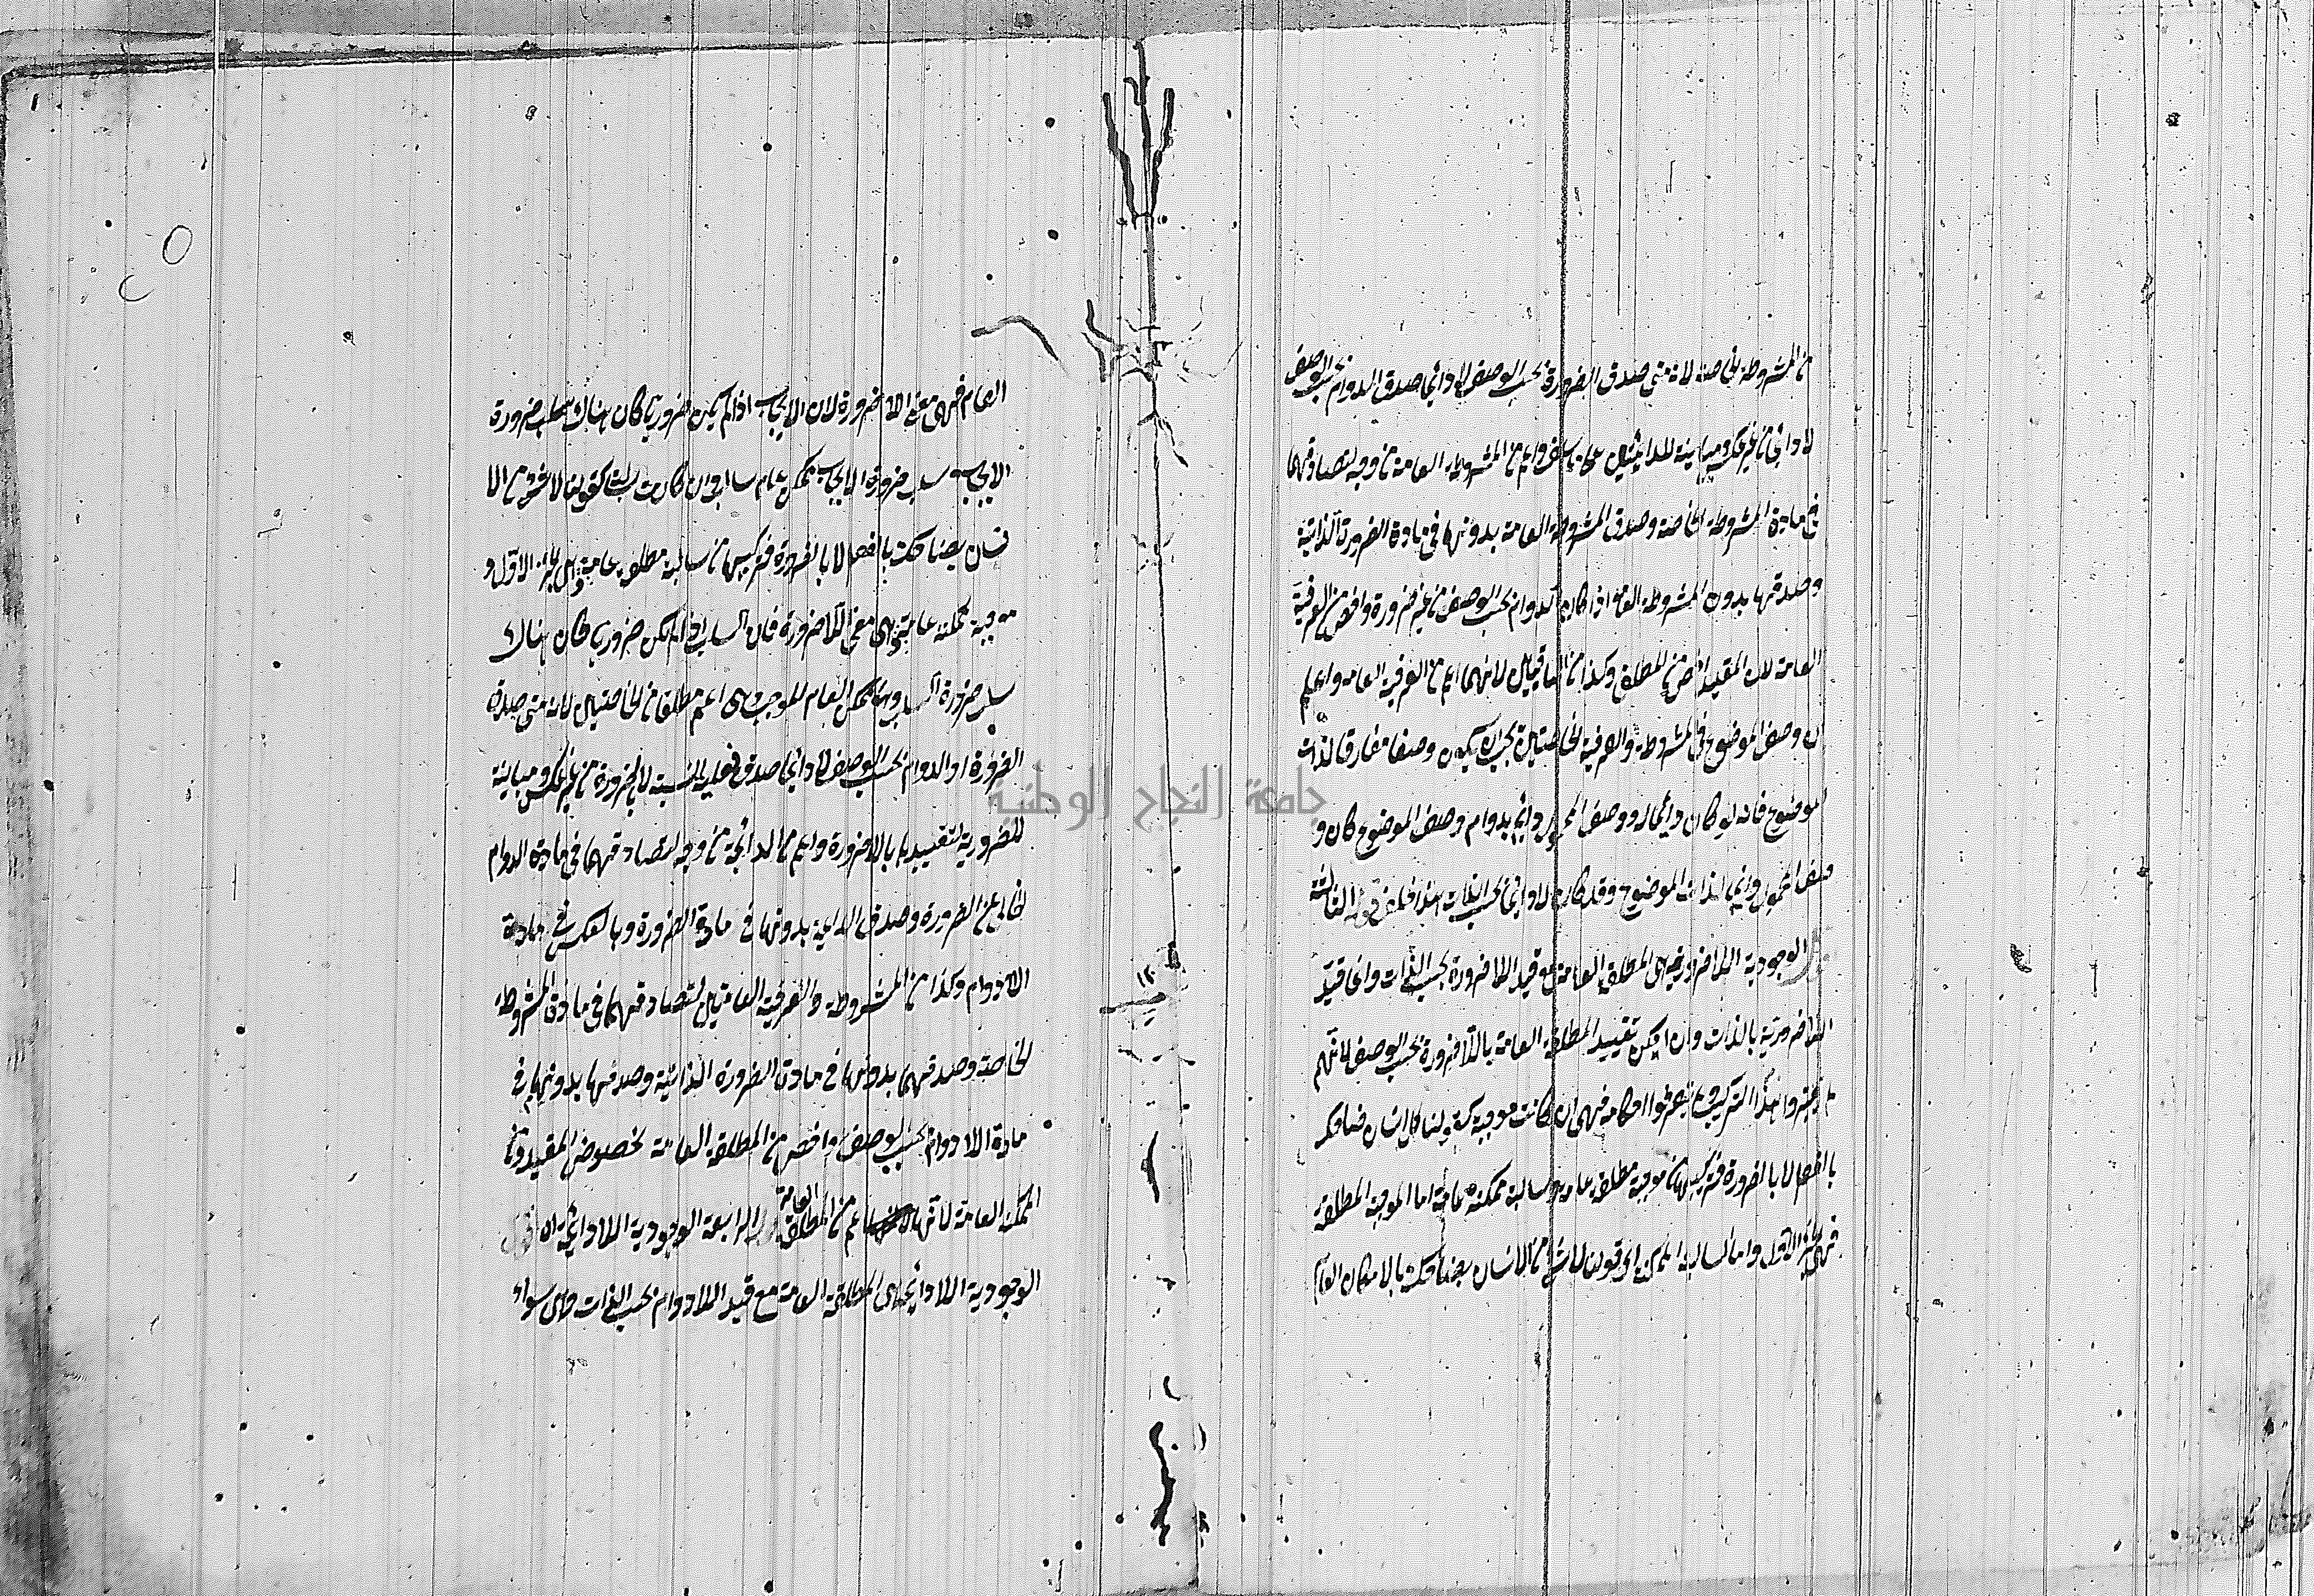 من المشروطة الخاصة لانه متى صدق الضرورة بحسب الوصف لا دائما صدق الدوام بحسب الوصف
لا دائما من غير عكس ومباينة للدائمتين على ما سلف واعم من المشروطة العامة من وجه لتصادقهما
في مادة المشروطة الخاصة وصدق المشروطة العامة بدونها في مادة الضرورة الذاتية
وصدقها بدون المشروطة العامة اذا كان الدوام بحسب الوصف من غير ضرورة واخص من العرفية
العامة لان المقيد اخص من المطلق وكذا من الباقيتين لانهما اعم من العرفية العامة واعلم
ان وصف الموضوع في المشروطة والعرفية الخاصتين يجب ان يكون وصفا مفارقا لذات
الموضوع فانه لو كان دائما له ووصف المحمول دائم بدوام وصف الموضوع كان و
وصف المحمول دائما لذات الموضوع وقد كان لا دائما بحسب الذات هذا خلف قوله الثالثة
الوجودية اللاضرورية هي المطلقة العامة مع قيد اللاضرورة بحسب الذات وانما قيد
اللاضرورية بالذات وان امكن تقييد المطلقة العامة باللاضرورة بحسب الوصف لانهم
لم يعتبروا هذا التركيب ولم يتعرفوا احكامه فهي ان كانت موجبة كقولنا كل انسان ضاحك
بالفعل لا بالضرورة فتركيبها من موجبة مطلقة عامة وسالبة ممكنة عامة اما الموجبة المطلقة
فهي الجزء الاول واما السالبة الممكنة اي قولنا لا شيء من الانسان بضاحك بالامكان العام
العام فهي معنى اللاضرورة لان الايجاب اذا لم يكن ضروريا كان هناك سلب ضرورة
الايجاب وسلب ضرورة الايجاب ممكن عام سالب وان كانت سالبة كقولنا لا شيء من الا
نسان بضاحك بالفعل لا بالضرورة فتركيبها من سالبة مطلقة عامة وهي الجزء الاول و
موجبة ممكنة عامة وهي معنى اللاضرورة فان السلب اذا لم يكن ضروريا كان هناك
سلب ضرورة السلب وهو الممكن العام الموجب وهي اعم مطلقا من الخاصتين لانه متى صدق
الضرورة او الدوام بحسب الوصف لا دائما صدق فعلية النسبة لا بالضرورة من غير عكس ومباينة
للضرورية لتقييدها باللاضرورة واعم من الدائمة من وجه لتصادقهما في مادة الدوام
الخالي عن الضرورة وصدق الدائمة بدونها في مادة الضرورة وبالعكس في مادة
اللادوام وكذا من المشروطة والعرفية العامتين لتصادقهما في مادة المشروطة
الخاصة وصدقهما بدونها في مادة الضرورة الذاتية وصدقها بدونهما في
مادة اللادوام بحسب الوصف واخص من المطلقة العامة لخصوص المقيد ومن
الممكنة العامة لانها اعم من المطلقة العامة الرابعة الوجودية اللادائمة اه اقول
الوجودية اللادائمة هي المطلقة العامة مع قيد اللادوام بحسب الذات وهي سواء
١٢٠
جامعة النجاح الوطنية